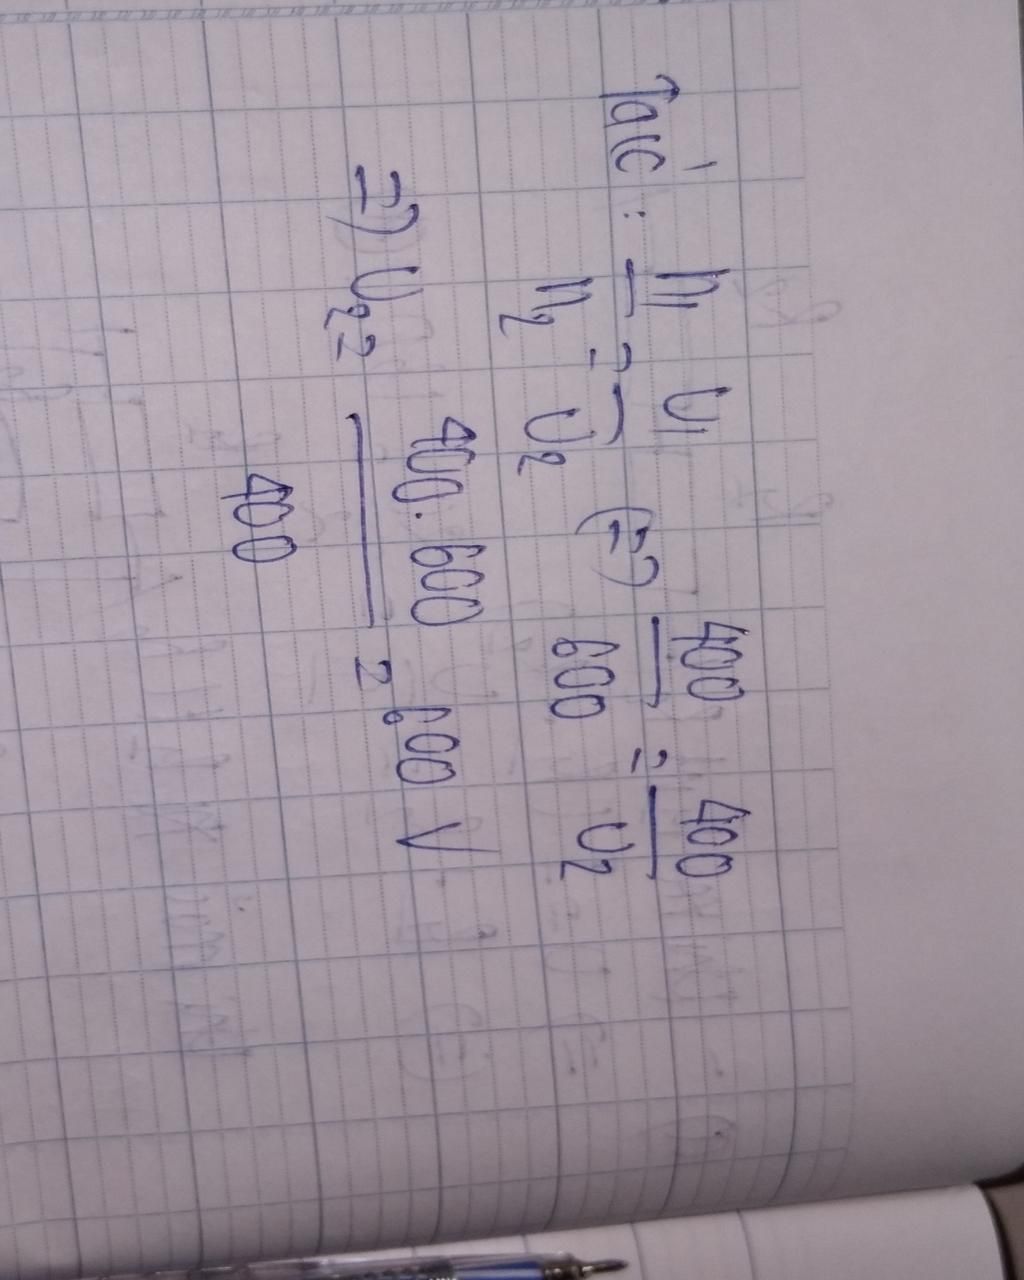 Ta có: n₁/n₂ = U₁/U₂ (=) 400/600 = 400/U₂
=) U₂ = 400.600/400 = 600 V